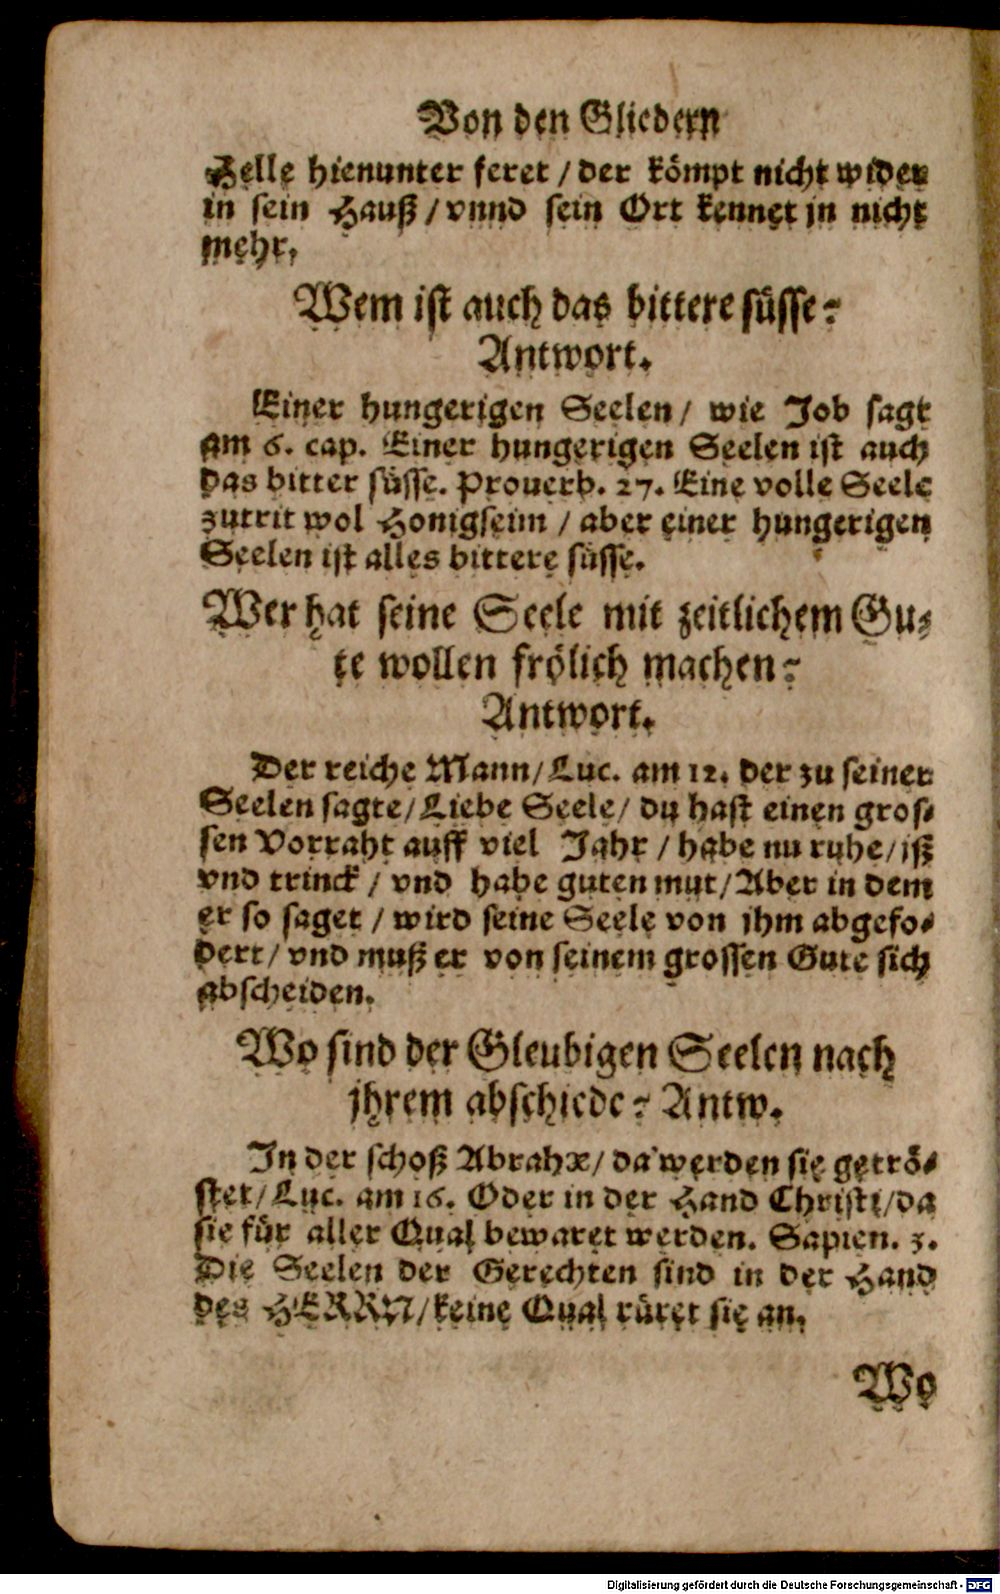 Von den Gliedern
Helle hienunter feret / der kömpt nicht wider
in sein Hauß / vnnd sein Ort kennet jn nicht
mehr.
Wem ist auch das bittere süsse?
Antwort.
Einer hungerigen Seelen / wie Job sagt
am 6. cap. Einer hungerigen Seelen ist auch
das bitter süsse. Prouerb. 27. Eine volle Seele
zutrit wol Honigseim / aber einer hungerigen
Seelen ist alles bittere süsse.
Wer hat seine Seele mit zeitlichem Gu-
te wollen frölich machen?
Antwort.
Der reiche Mann / Luc. am 12. der zu seiner
Seelen sagte / Liebe Seele / du hast einen gros-
sen Vorraht auff viel Jahr / habe nu ruhe / iß
vnd trinck / vnd habe guten mut / Aber in dem
er so saget / wird seine Seele von jhm abgefo-
dert / vnd muß er von seinem grossen Gute sich
abscheiden.
Wo sind der Gleubigen Seelen nach
jhrem abschiede? Antw.
In der schoß Abrahæ / da werden sie geträ-
stet / Luc. am 16. Oder in der Hand Christi / da
sie für aller Qual bewaret werden. Sapien. 3.
Die Seelen der Gerechten sind in der Hand
des HERRN / keine Qual rüret sie an.
Wo
Digitalisierung gefördert durch die Deutsche Forschungsgemeinschaft - DFG